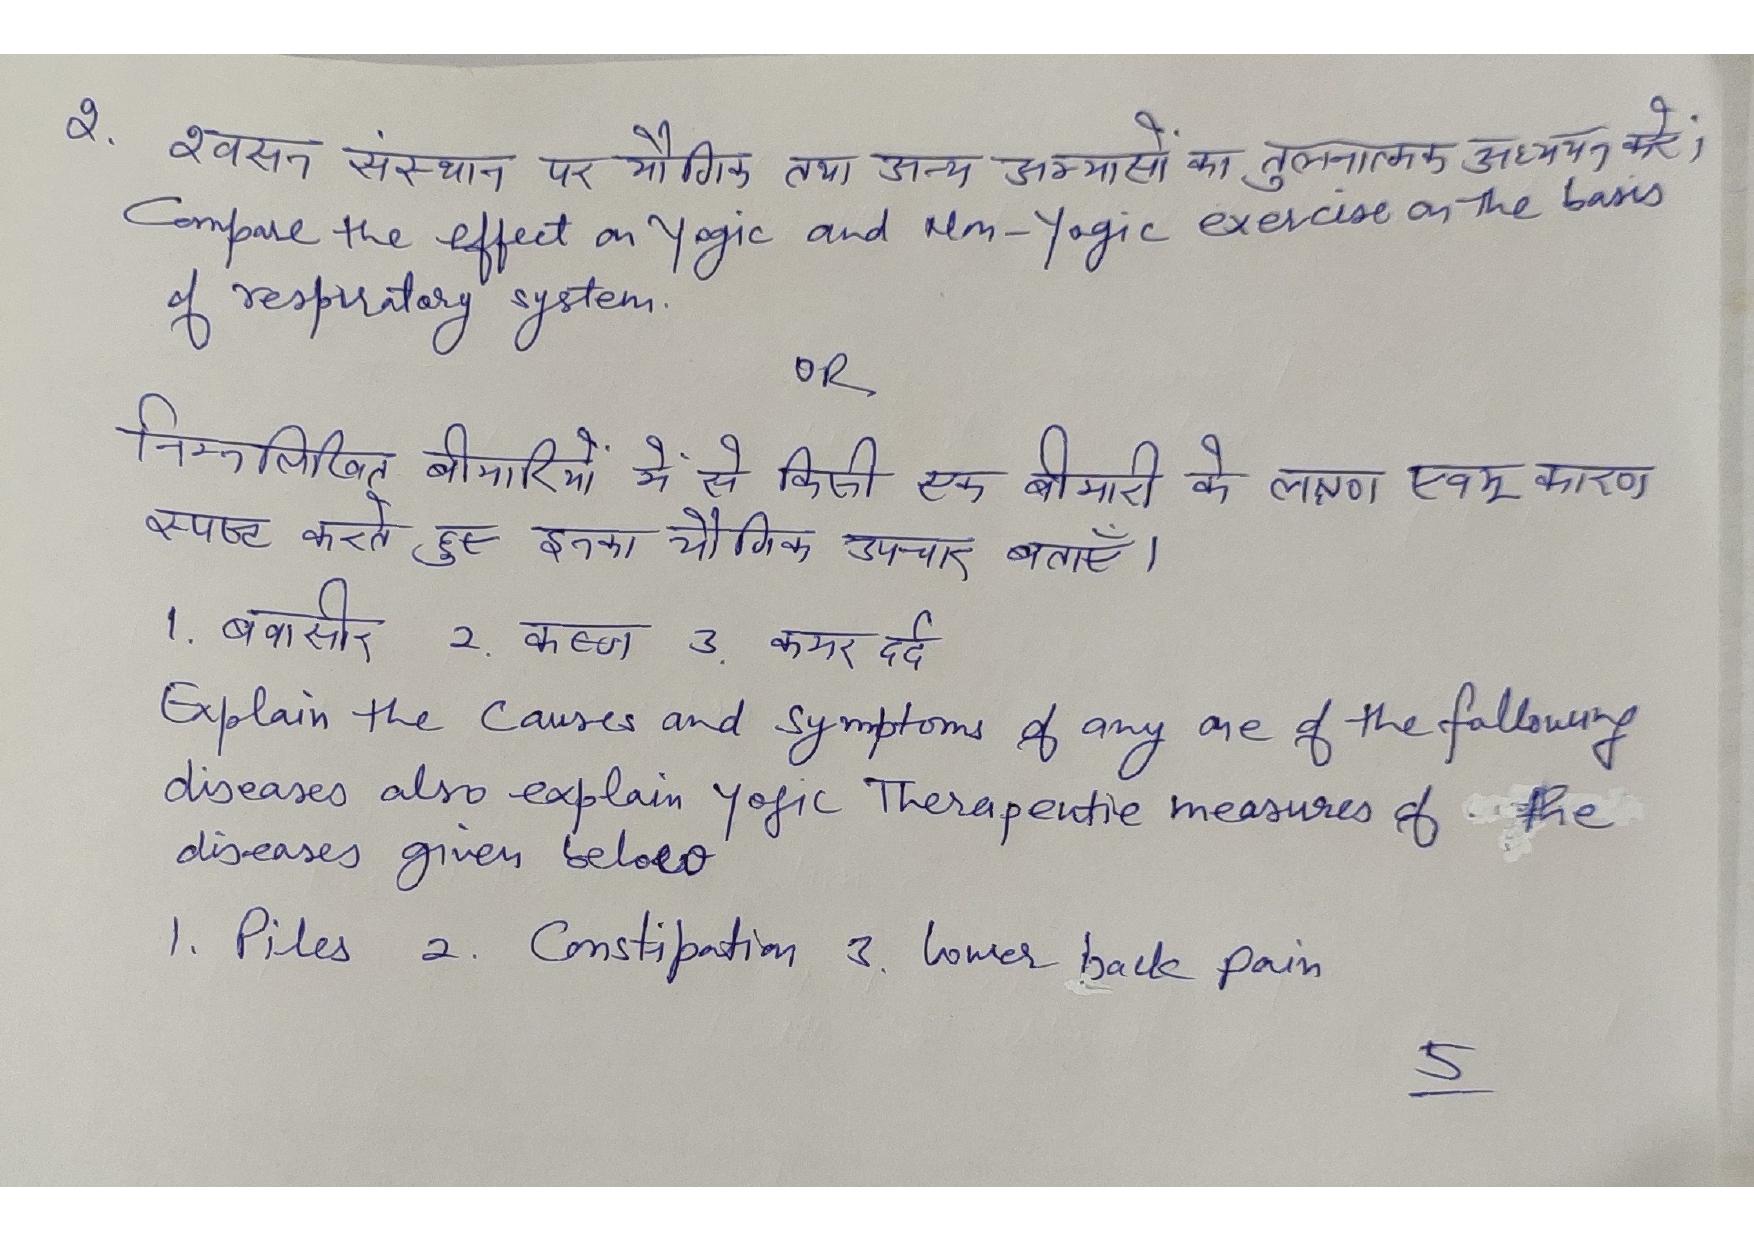 २. श्वसन संस्थान पर यौगिक तथा अन्य अभ्यासों का तुलनात्मक अध्ययन करें।
Compare the effect on Yogic and Non-Yogic exercise on the basis
of respiratory system.
OR
निम्नलिखित बीमारियों में से किसी एक बीमारी के लक्षण एवम् कारण
स्पष्ट करते हुए इनका यौगिक उपचार बताएँ।
1. बवासीर 2. कब्ज 3. कमर दर्द
Explain the causes and symptoms of any one of the following
diseases also explain yogic Therapeutic measures of the
diseases given below
1. Piles 2. Constipation 3. lower back pain
5